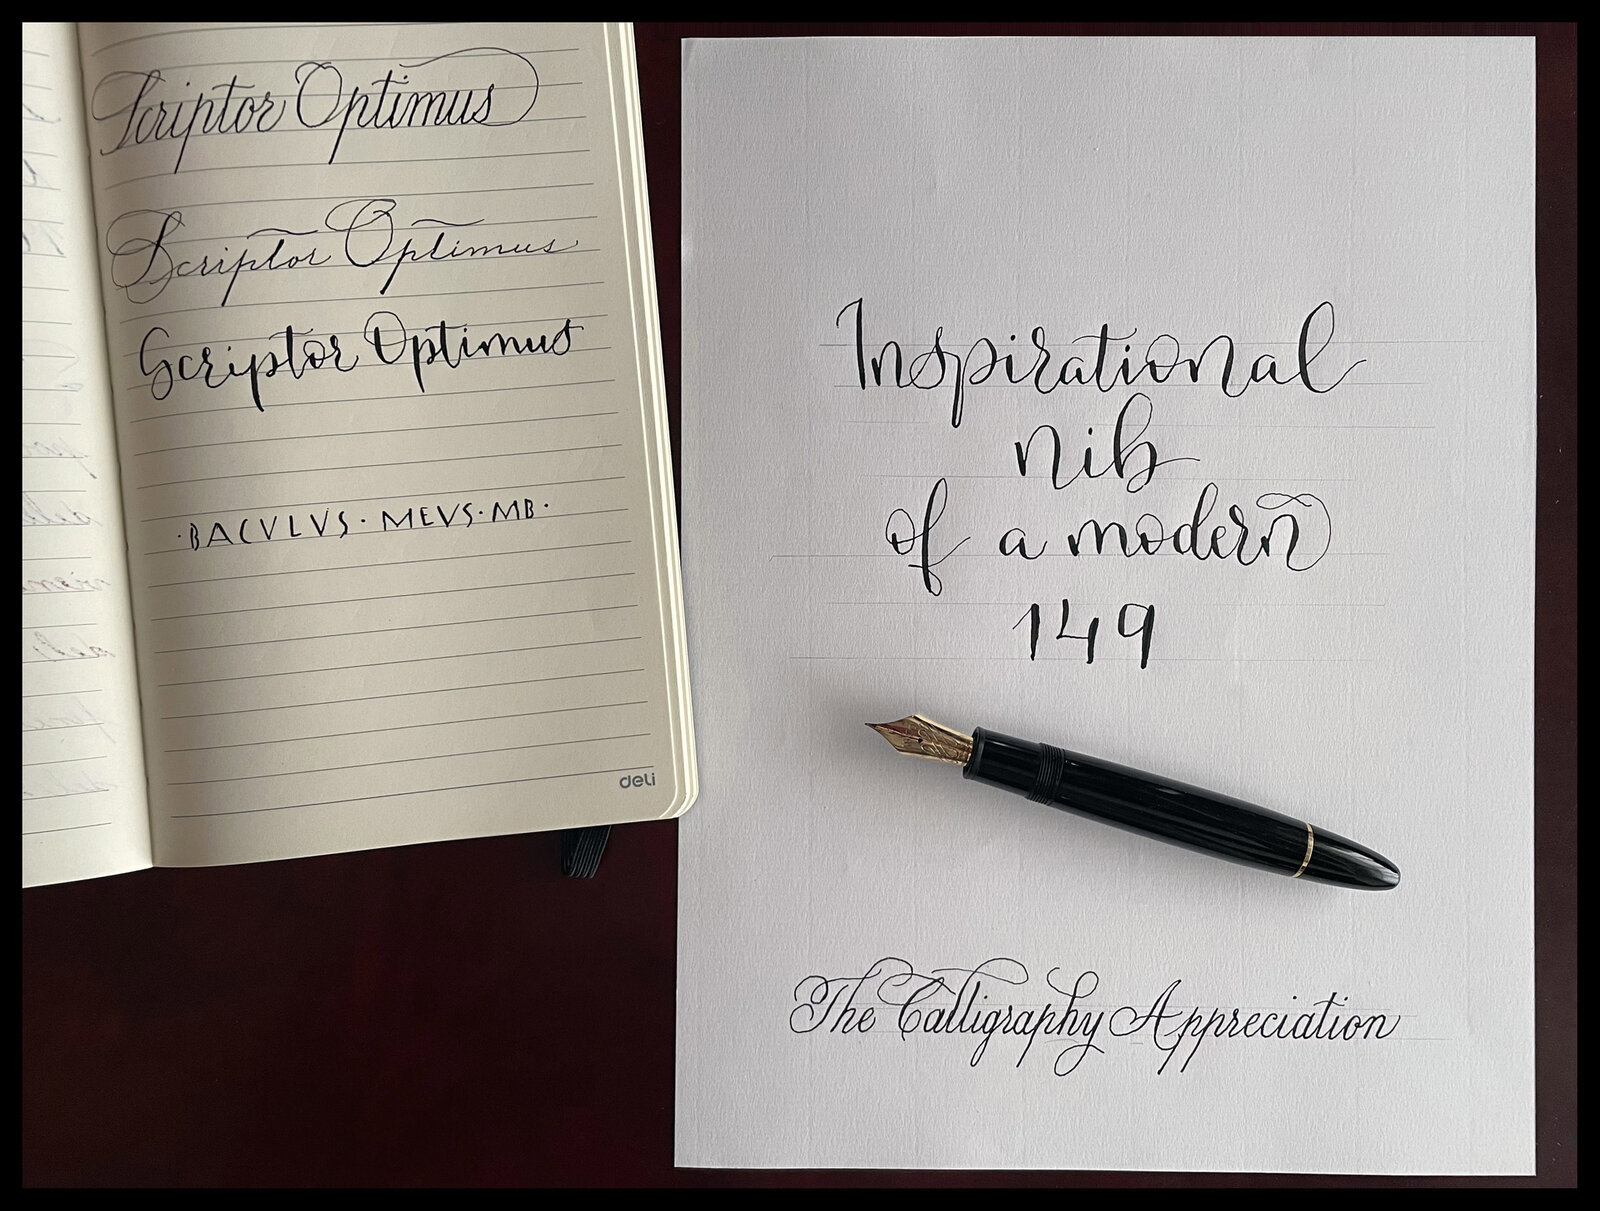 Scriptor Optimus
Scriptor Optimus
Scriptor Optimus
·BACVLVS·MEVS·MB·
deli
Inspirational
nib
of a modern
149
The Calligraphy Appreciation